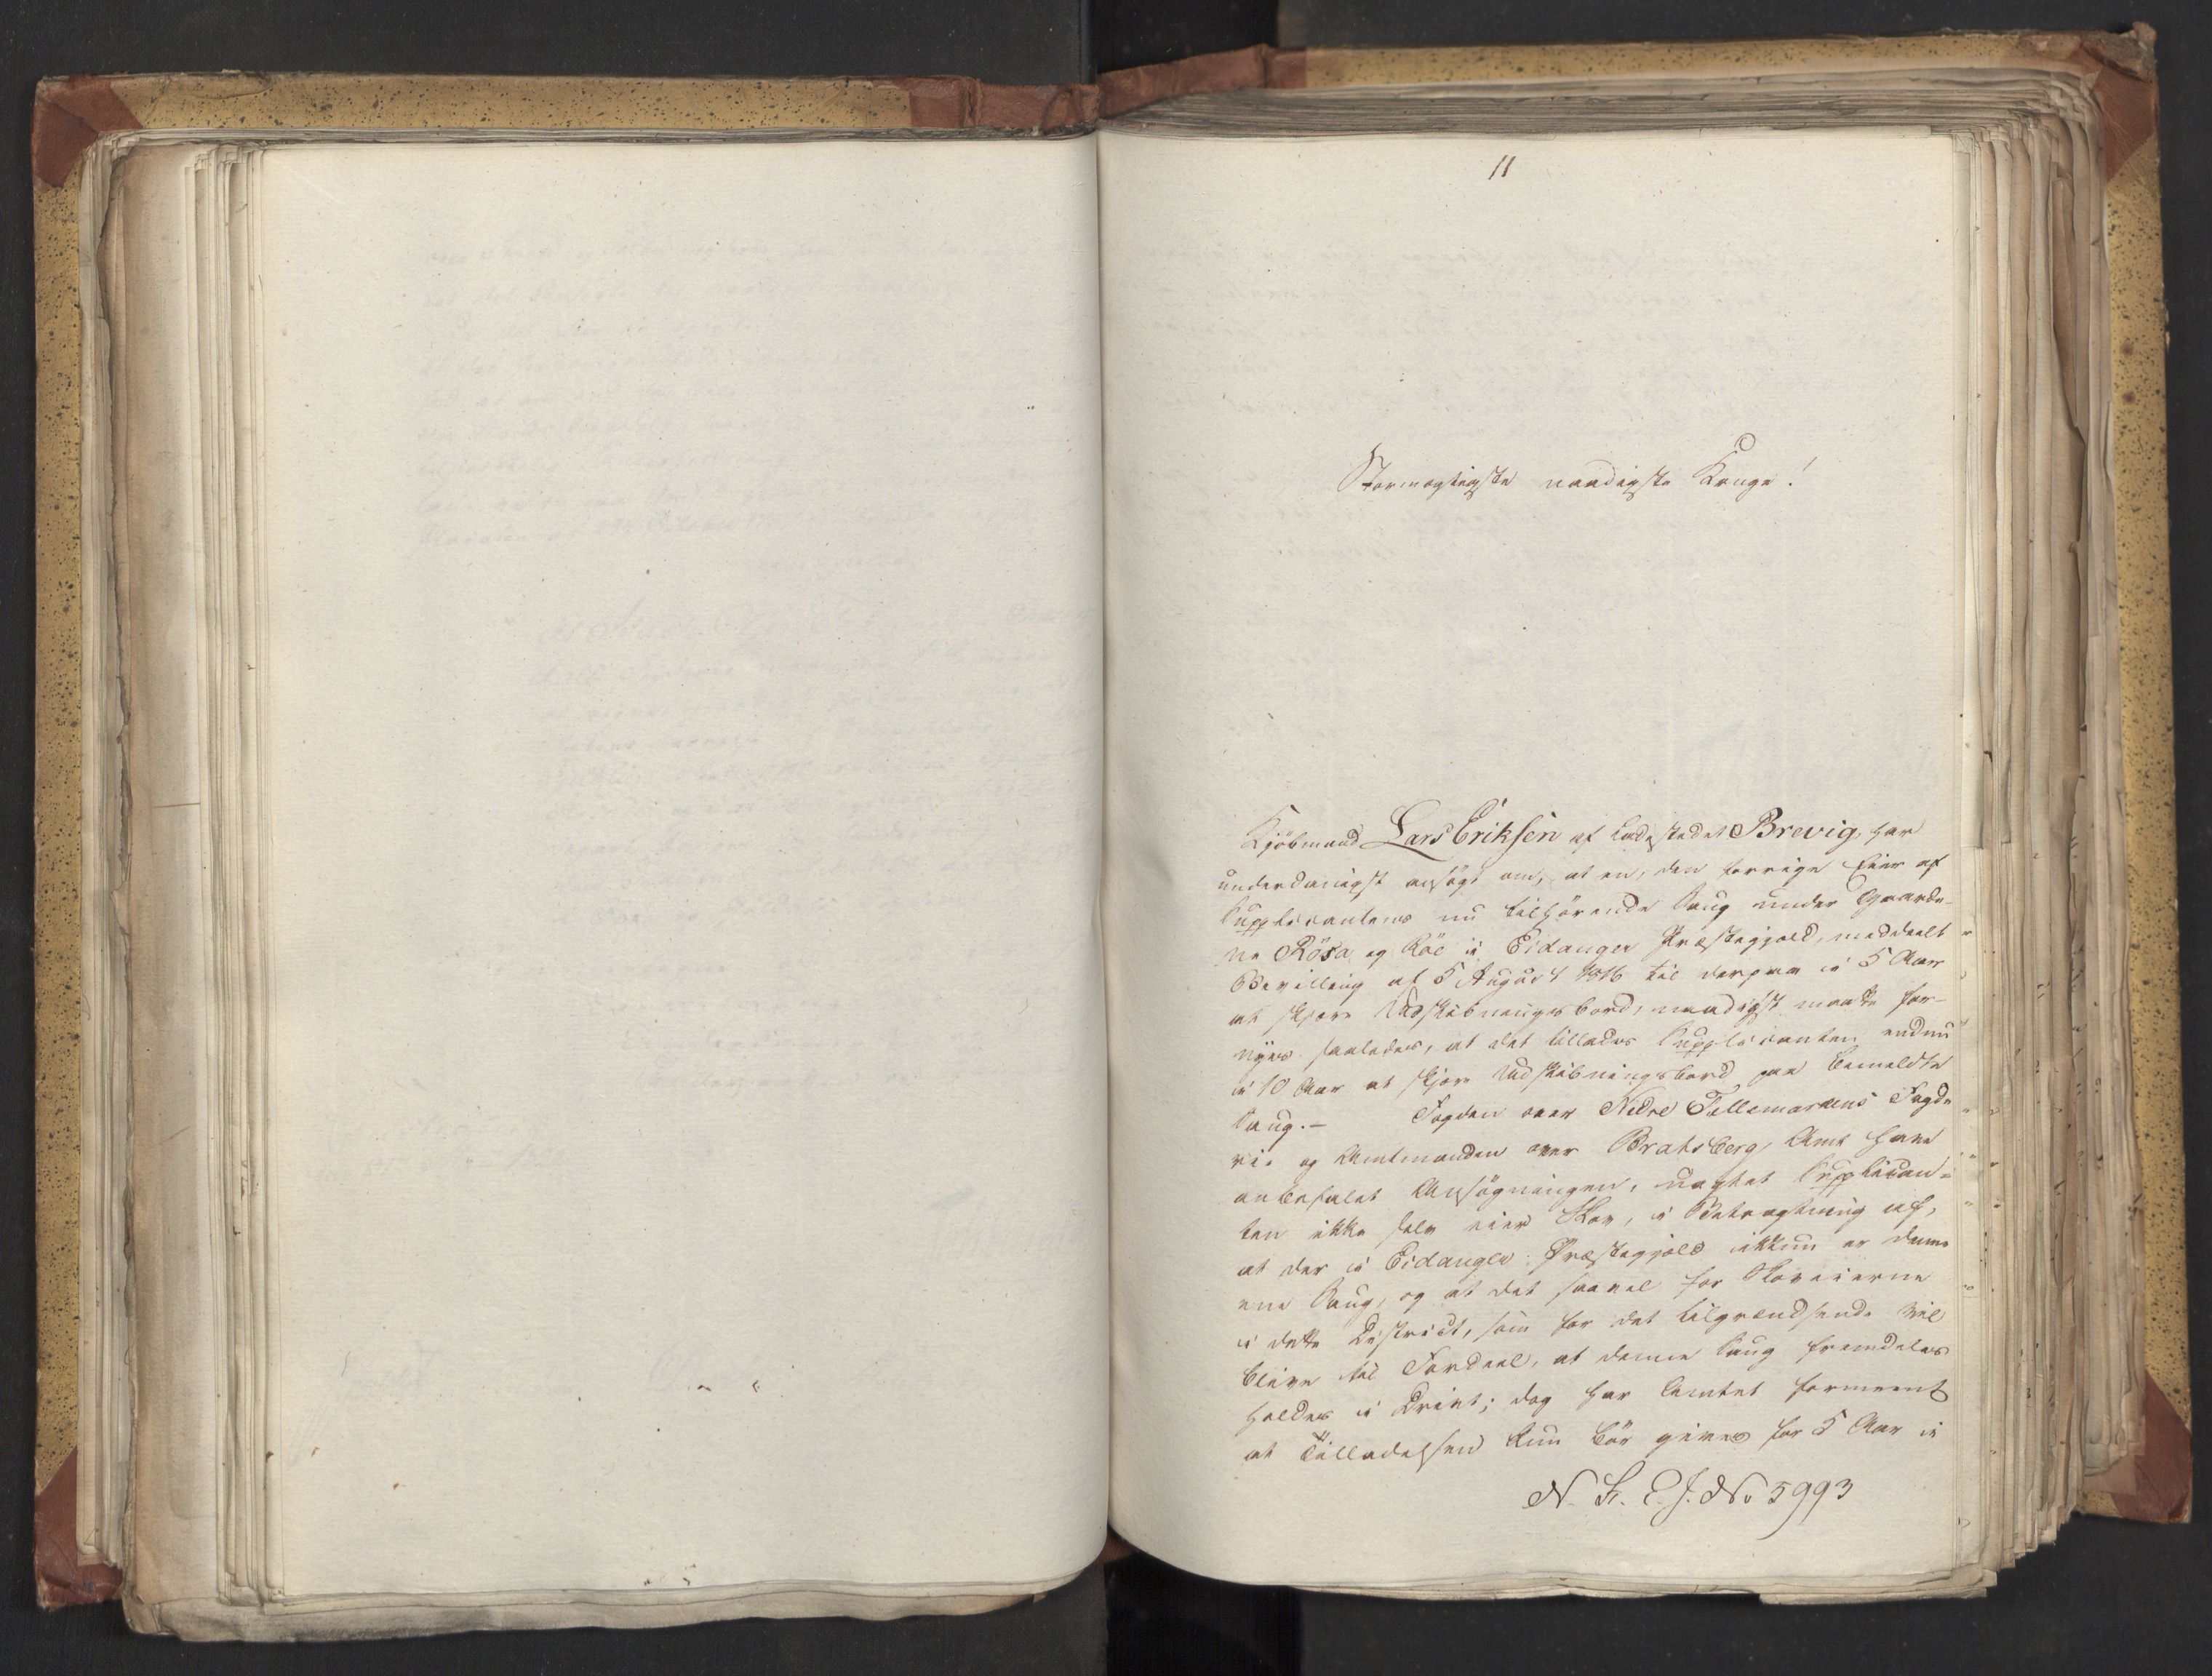 11
Stormægtigste naadigste Konge!
Kjöbmand Lars Eriksen af Ladestedet Brevig, har
underdanigst ansögt om, at en, den forrige Eier af
Supplicantens nu tilhörende Saug under Gaarde-
ne Rösa og Röe i Eidanger Præstegjæld, meddeelt
Bevilling af 5 August 1816 til derpaa i 5 Aar
at skjære Udskibningsbord, naadigst maatte for-
nyes saaledes, at det tillades Supplicanten endnu
i 10 Aar at skjære Udskibningsbord paa bemeldte
Saug.— Fogden over Nedre Tellemarkens Fogde
rie og Amtmanden over Bratsberg Amt have
anbefalet Ansögningen, uagtet Supplican-
ten ikke selv eier Skov, i Betragtning af,
at der i Eidanger Præstegjæld ikkun er denne
ene Saug, og at det saavel for Skoveierne
i dette District, som for det tilgrændsende vil
blive til Fordeel, at denne Saug fremdeles
holdes i Drivt; dog har Amtet formeent
at Tilladelsen kun bör gives for 5 Aar i
N. K. E. J. No 5993